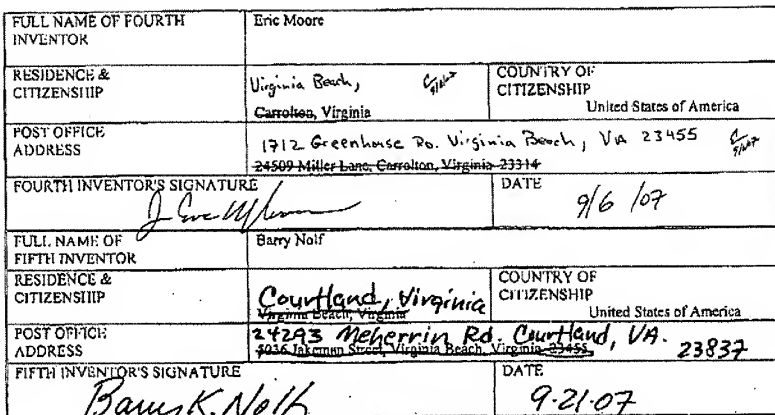 FULL NAME OF FOURTH INVENTOR
Eric Moore
RESIDENCE & CITIZENSHIP
Virginia Beach,
Carrolton, Virginia
COUNTRY OF CITIZENSHIP
United States of America
POST OFFICE ADDRESS
1712 Greenhouse Rd. Virginia Beach, VA 23455
24509 Miller Lane, Carrolton, Virginia 23314
FOURTH INVENTOR'S SIGNATURE
DATE
9/6/07
FULL NAME OF FIFTH INVENTOR
Barry Nolf
RESIDENCE & CITIZENSHIP
Courtland, Virginia
Virginia Beach, Virginia
COUNTRY OF CITIZENSHIP
United States of America
POST OFFICE ADDRESS
24293 Meherrin Rd. Courtland, VA. 23837
Street, Virginia Beach, Virginia 23455
FIFTH INVENTOR'S SIGNATURE
Barry K. Nolf
DATE
9-21-07